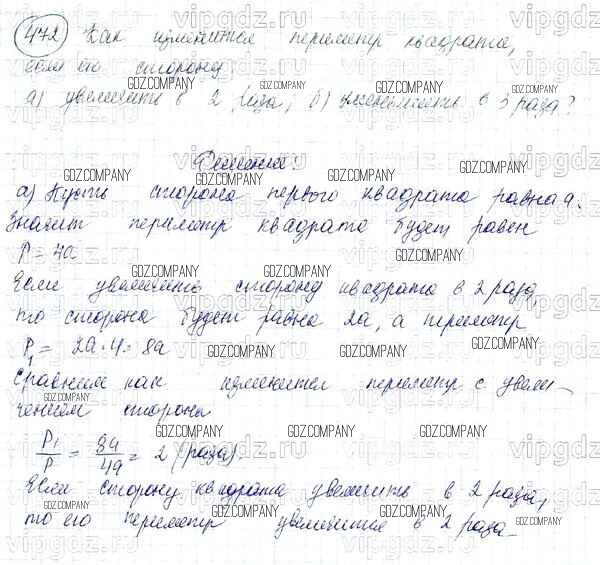 472 Как изменится периметр квадрата,
если его сторону:
а) увеличить в 2 раза; б) уменьшить в 3 раза?
Решение:
а) Пусть сторона первого квадрата равна a.
Значит периметр квадрата будет равен
P = 4a
Если увеличить сторону квадрата в 2 раза,
то сторона будет равна 2a, а периметр
P₁ = 2a·4 = 8a
Сравним как изменится периметр с увели-
чением стороны
P₁/P = 8a/4a = 2 (раза).
Если сторону квадрата увеличить в 2 раза,
то его периметр увеличится в 2 раза